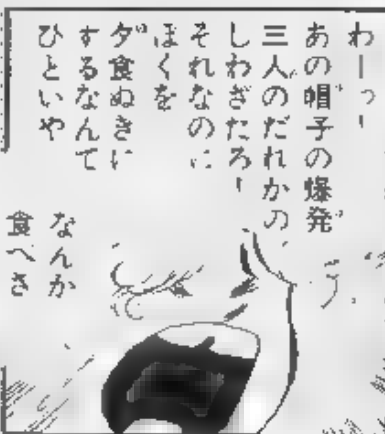 わーっ！
あの帽子の爆発
三人のだれかの
しわざだろ！
それなのに
ぼくを
夕食ぬきに
するなんて
ひどいや
なんか
食べさ